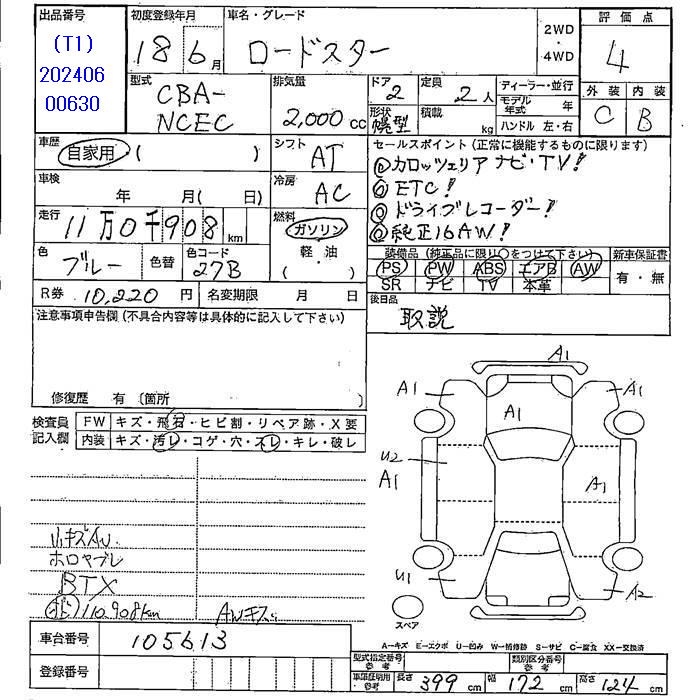 出品番号
(T1)
202406
00630
初度登録年月
18 6月
車名・グレード
ロードスター
2WD
・
4WD
評価点
4
外装 内装
C B
型式
CBA-
NCEC
排気量
2,000 cc
ドア
2
定員
2人
形状
幌型
積載
kg
ディーラー・並行
モデル年式 年
ハンドル 左・右
車歴
自家用 ( )
シフト
AT
車検
年 月( 日)
冷房
AC
走行
11万0千908 km
燃料
ガソリン
軽・油
( )
色
ブルー
色替
色コード
27B
R券 10,220 円
名変期限 月 日
セールスポイント(正常に機能するものに限ります)
◎カロッツェリアナビ・TV!
◎ETC!
◎ドライブレコーダー!
◎純正16AW!
装備品(純正品に限り○をつけて下さい)
新車保証書
PS PW ABS エアB AW
SR ナビ TV 本革
有・無
後日品
取説
注意事項申告欄(不具合内容等は具体的に記入して下さい)
修復歴 有 〔箇所 〕
検査員
記入欄
FW キズ・飛石・ヒビ割・リペア跡・X要
内装 キズ・汚レ・コゲ・穴・スレ・キレ・破レ
ホロヤブレ
BTX
110,908km
AWキズ
A1
A1
A1
A1
U2
A1
A1
U1
A2
スペア
A-キズ E-エクボ U-凹み W-補修跡 S-サビ C-腐食 XX-交換済
車台番号
105613
登録番号
型式指定番号
参考
類別区分番号
参考
車庫証明用
参考
長さ 399 cm
幅 172 cm
高さ 124 cm